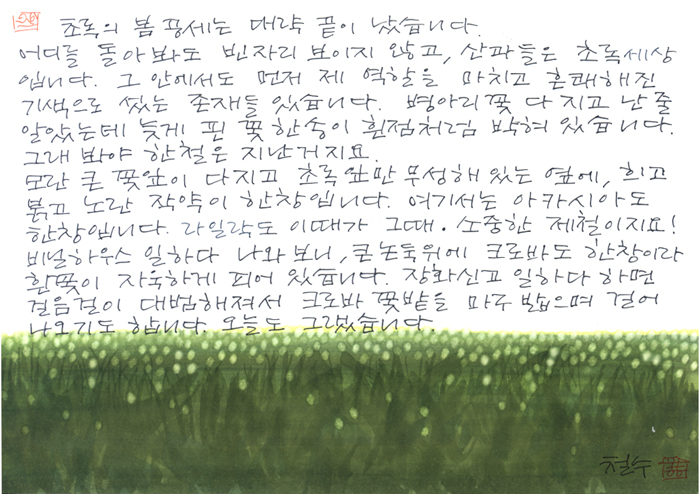 초록의 봄 공세는 대략 끝이 났습니다.
어디를 돌아봐도 빈자리 보이지 않고, 산과들은 초록세상
입니다. 그 안에서도 먼저 제 역할을 마치고 흔쾌해진
기색으로 섰는 존재들 있습니다. 병아리꽃 다 지고 난 줄
알았는데 늦게 핀 꽃 한송이 흰점처럼 박혀 있습니다.
그래 봐야 한철은 지난거지요.
모란 큰 꽃잎이 다 지고 초록잎만 무성해 있는 옆에, 희고
붉고 노란 작약이 한창입니다. 여기서는 아카시아도
한창입니다. 라일락도 이때가 그때. 소중한 제철이지요!
비닐하우스 일하다 나와보니, 큰논둑위에 크로바도 한창이라
흰꽃이 자욱하게 피어 있습니다. 장화신고 일하다 하면
걸음걸이 대범해져서 크로바 꽃밭을 마구 밟으며 걸어
나오기도 합니다. 오늘도 그랬습니다.
철수